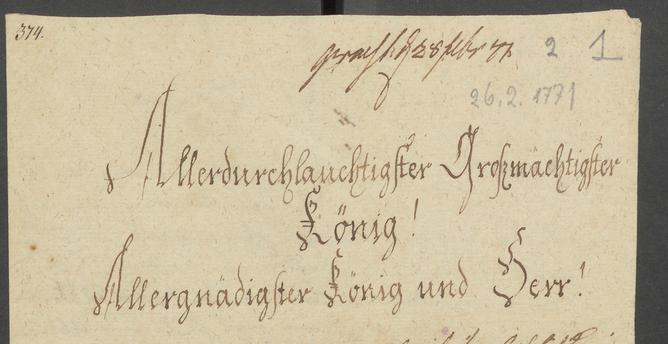 374.
praes. d. 28 febr 71. 2 1
26.2.1771
Allerdurchlauchtigster Großmächtigster
König!
Allergnädigster König und Herr!